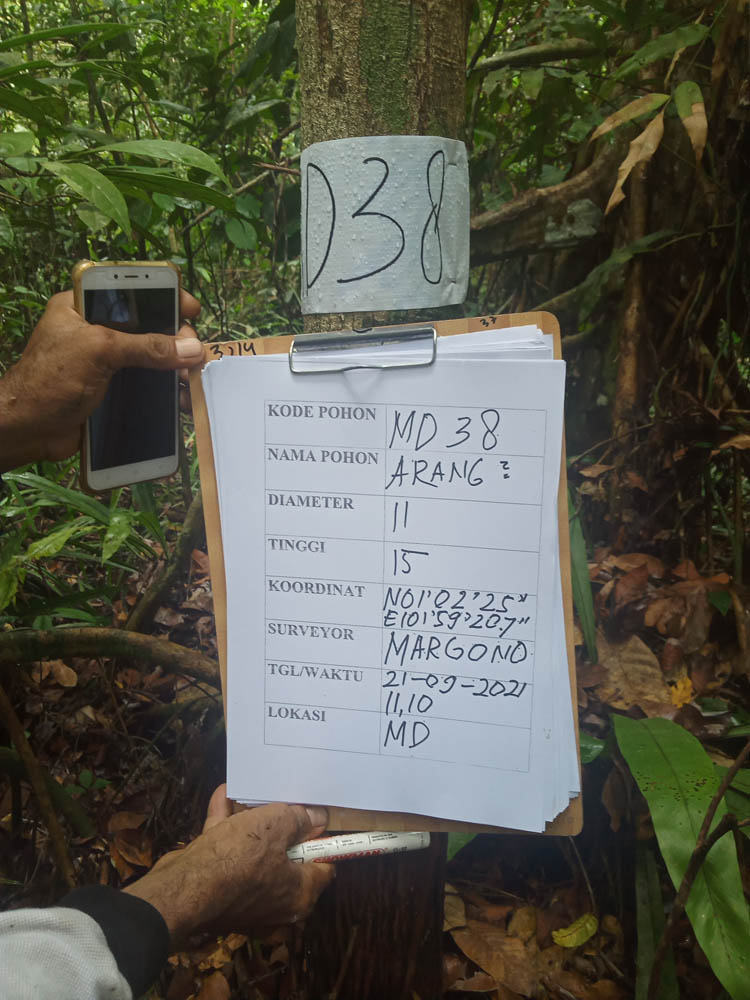 D38
KODE POHON MD 38
NAMA POHON ARANG ??
DIAMETER 11
TINGGI 15
KOORDINAT N01°02'25"
E101°59'20.7"
SURVEYOR MARGONO
TGL/WAKTU 21-09-2021
11,10
LOKASI MD